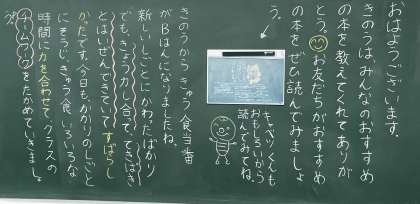 おはようございます。
きのうはみんなのおすすめ
の本を教えてくれてありが
とう。お友だちがおすすめ
の本をぜひ読んでみましょ
う。
キャベツくんも
おもしろいから
読んでみてね。
きのうからきゅう食当番
がBはんになりましたね。
新しいしごとにかわったばかり
でも、きょう力し合って、てきぱき
とはいぜんできていてすばらし
かったです。今日も、かかりのしごと
にそうじ、きゅう食、いろいろな
時間に力を合わせて、クラスの
チームワークをたかめていきましょ
う。